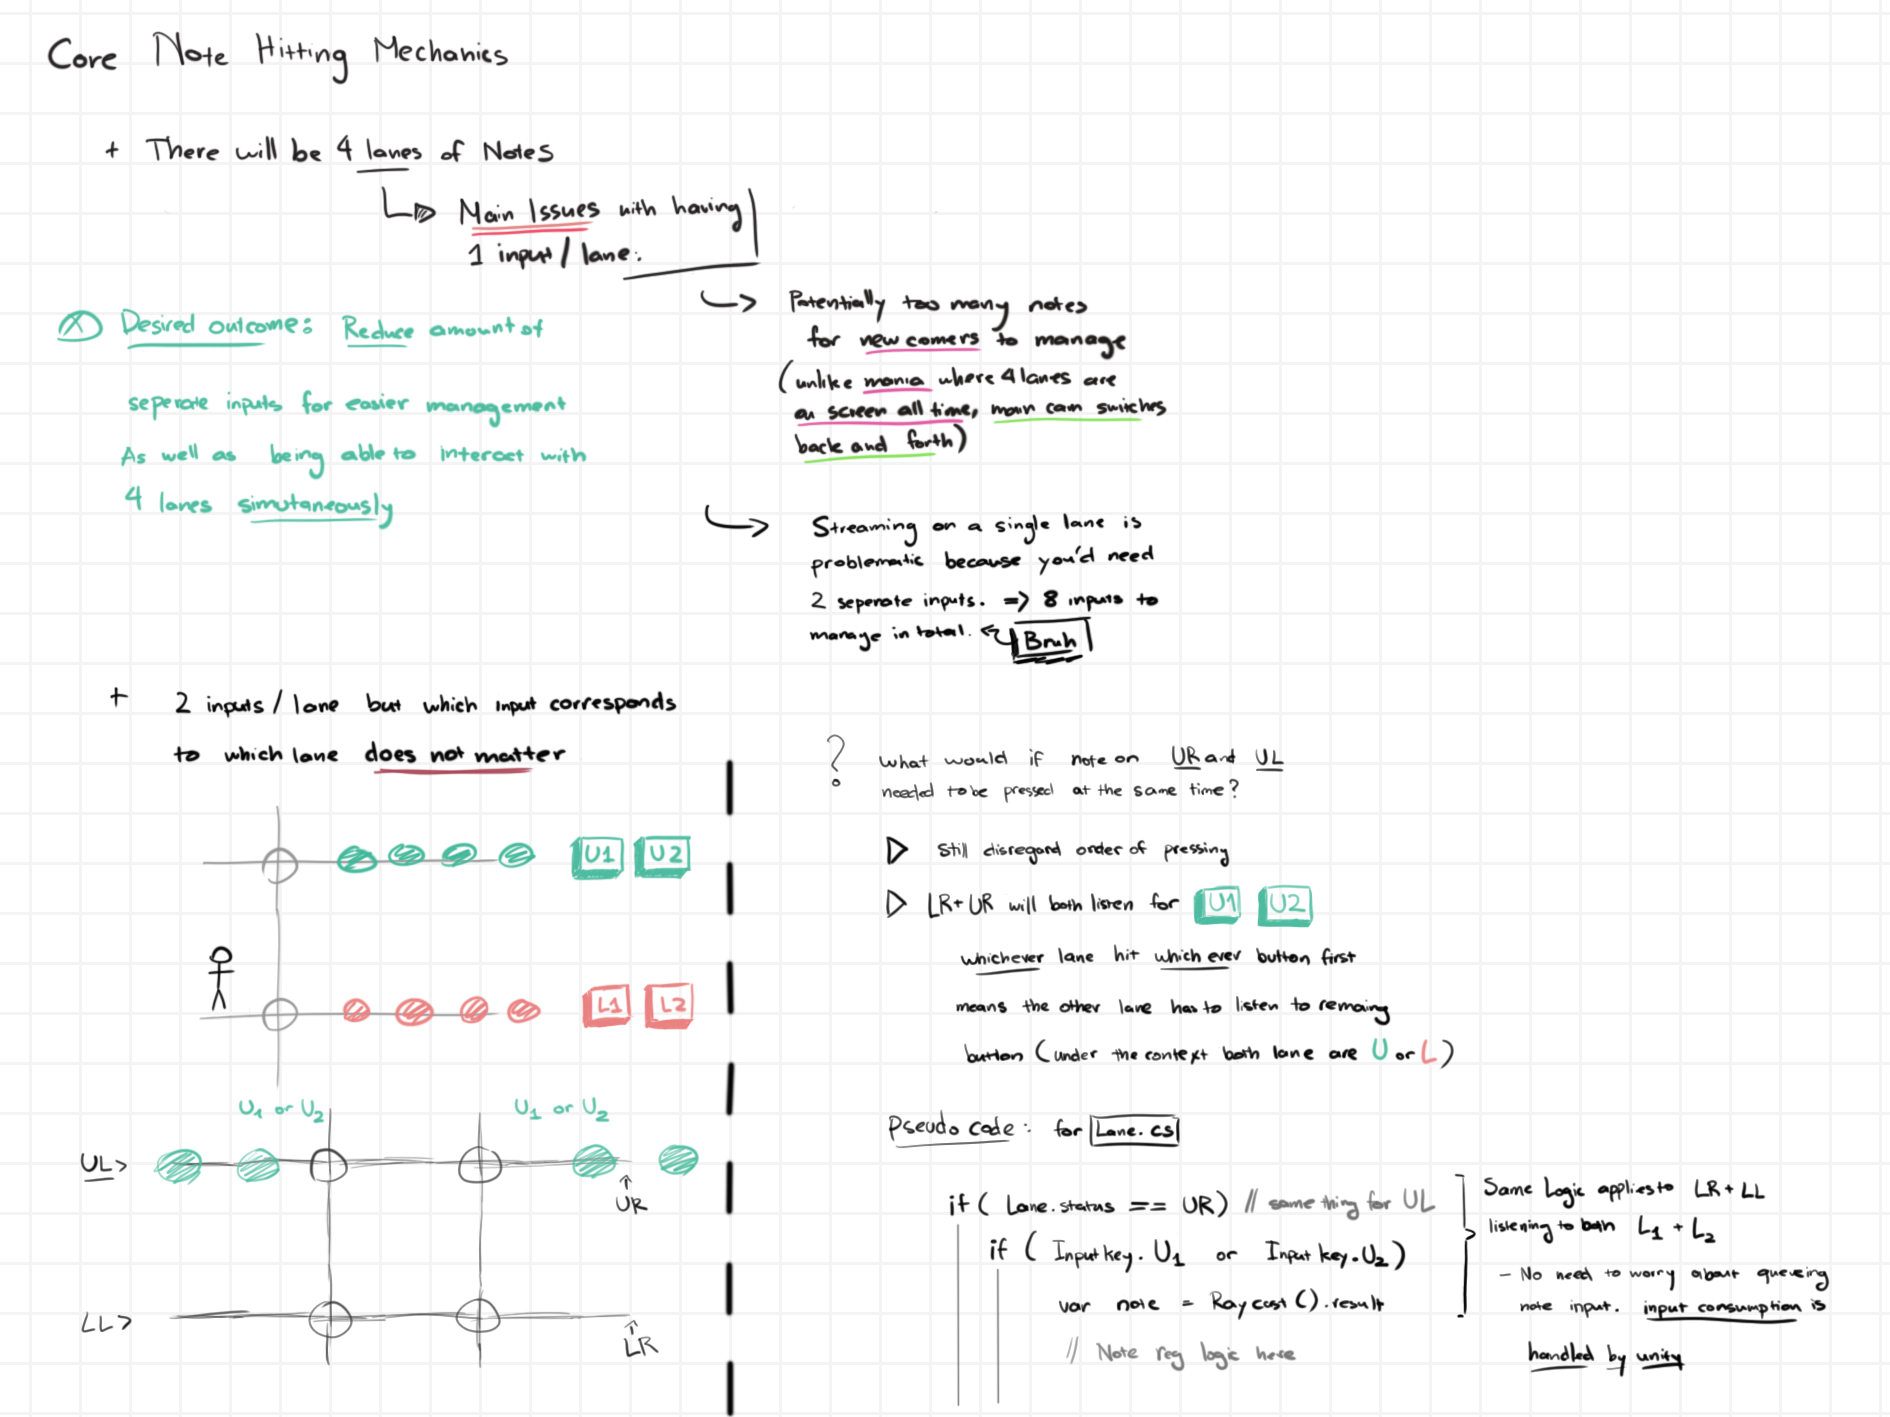 Core Note Hitting Mechanics
+ There will be 4 lanes of Notes
Main Issues with having
1 input / lane:
Potentially too many notes
for new comers to manage
(unlike mania where 4 lanes are
on screen all time, main cam switches
back and forth)
Desired outcome: Reduce amount of
seperate inputs for easier management
As well as being able to interact with
4 lanes simutaneously
Streaming on a single lane is
problematic because you'd need
2 seperate inputs. => 8 inputs to
manage in total.
Bruh
+ 2 inputs / lane but which input corresponds
to which lane does not matter
U1 U2
L1 L2
U1 or U2 U1 or U2
UL>
UR
LL>
LR
? what would if note on UR and UL
needed to be pressed at the same time?
Still disregard order of pressing
LR+UR will both listen for U1 U2
whichever lane hit which ever button first
means the other lane has to listen to remaing
button (under the context both lane are U or L)
Pseudo code: for Lane.cs
if ( Lane.status == UR) // same thing for UL
if ( Inputkey.U1 or Inputkey.U2)
var note = Raycast().result
// Note reg logic here
Same Logic applies to LR+LL
listening to both L1 + L2
- No need to worry about queueing
note input. input consumption is
handled by unity